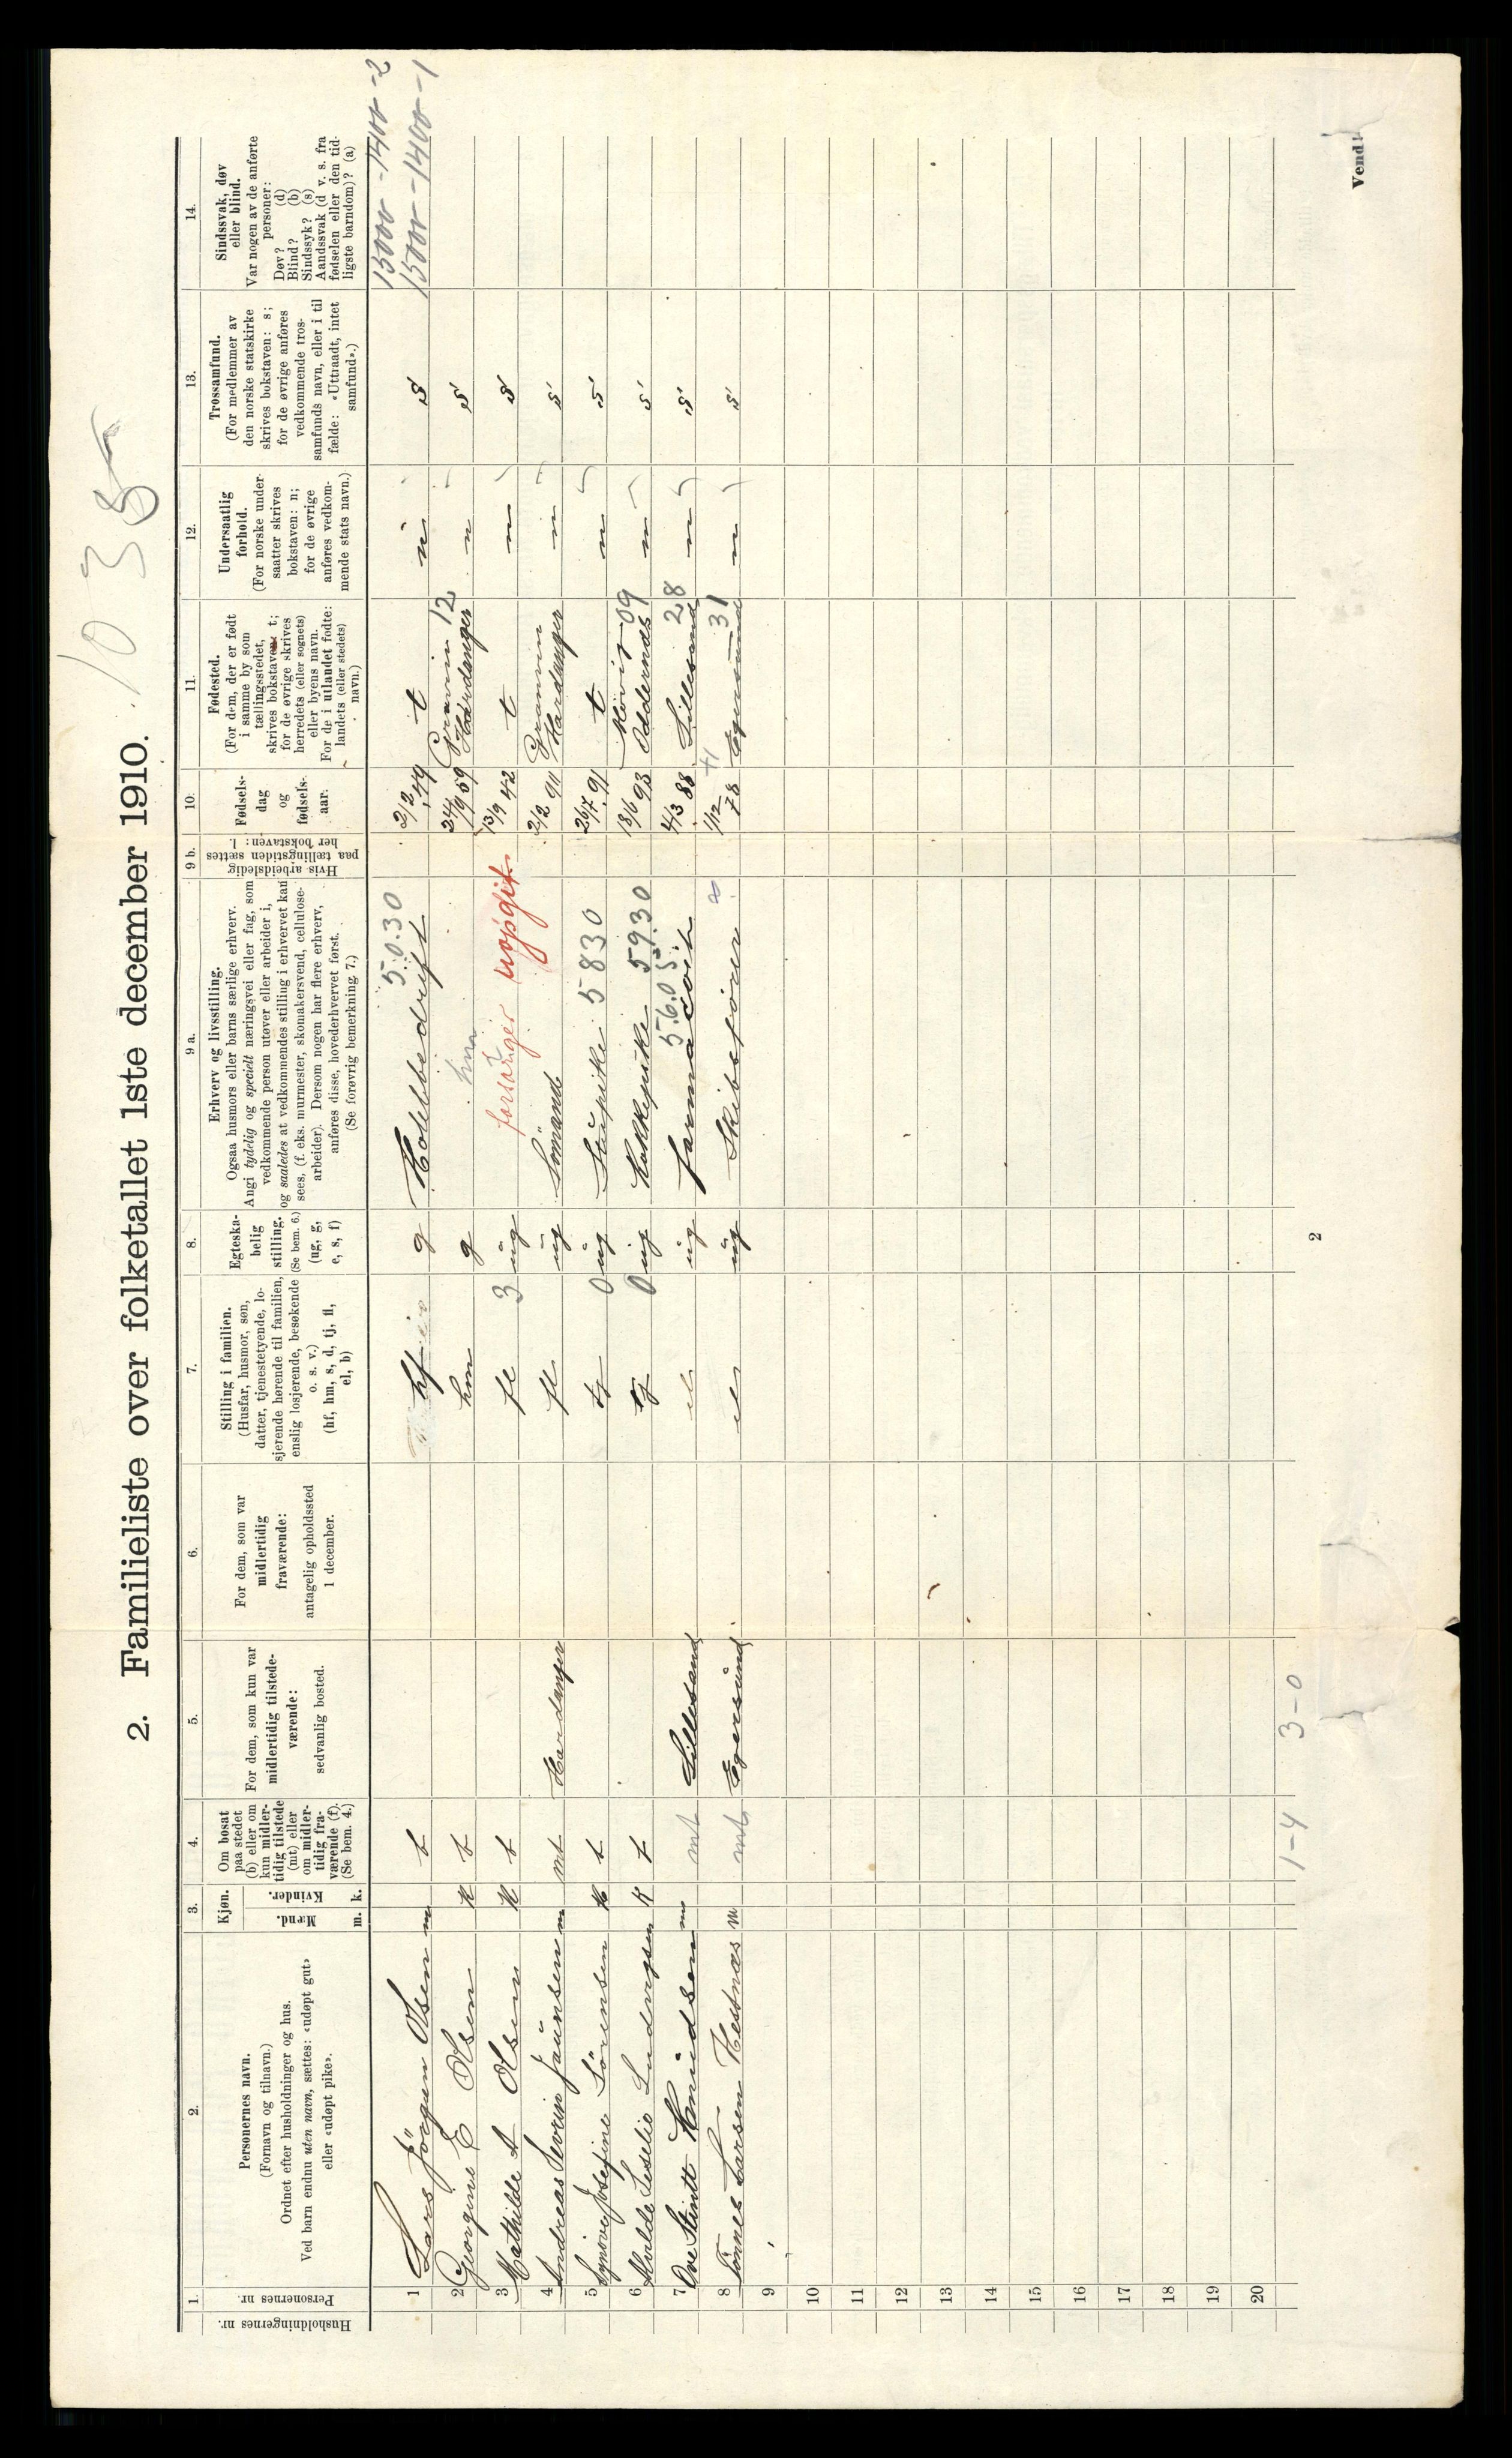 10 3 85
2. Familieliste over folketallet 1ste december 1910.
Husholdningernes nr.
1.
Personernes nr.
2.
Personernes navn.
(Fornavn og tilnavn.)
Ordnet efter husholdninger og hus.
Ved barn endnu uten navn, sættes: «udøpt gut»
eller «udøpt pike».
3.
Kjøn.
Mænd.
Kvinder.
m. k.
4.
Om bosat
paa stedet
(b) eller om
kun midler-
tidig tilstede
(mt) eller
om midler-
tidig fra-
værende (f).
(Se bem. 4.)
5.
For dem, som kun var
midlertidig tilstede-
værende:
sedvanlig bosted.
6.
For dem, som var
midlertidig
fraværende:
antagelig opholdssted
1 december.
7.
Stilling i familien.
(Husfar, husmor, søn,
datter, tjenestetyende, lo-
sjerende hørende til familien,
enslig losjerende, besøkende
o. s. v.)
(hf, hm, s, d, tj, fl,
el, b)
8.
Egteska-
belig
stilling.
(Se bem. 6.)
(ug, g,
e, s, f)
9 a.
Erhverv og livsstilling.
Ogsaa husmors eller barns særlige erhverv.
Angi tydelig og specielt næringsvei eller fag, som
vedkommende person utøver eller arbeider i,
og saaledes at vedkommendes stilling i erhvervet kan
sees, (f. eks. murmester, skomakersvend, cellulose-
arbeider). Dersom nogen har flere erhverv,
anføres disse, hovederhvervet først.
(Se forøvrig bemerkning 7.)
9 b.
Hvis arbeidsledig
paa tællingstiden sættes
her bokstaven: l
10.
Fødsels-
dag
og
fødsels-
aar.
11.
Fødested.
(For dem, der er født
i samme by som
tællingsstedet,
skrives bokstaven: t;
for de øvrige skrives
herredets (eller sognets)
eller byens navn.
For de i utlandet fødte:
landets (eller stedets)
navn.)
12.
Undersaatlig
forhold.
(For norske under-
saatter skrives
bokstaven: n;
for de øvrige
anføres vedkom-
mende stats navn.)
13.
Trossamfund.
(For medlemmer av
den norske statskirke
skrives bokstaven: s;
for de øvrige anføres
vedkommende tros-
samfunds navn, eller i til
fælde: «Uttraadt, intet
samfund».)
14.
Sindssvak, døv
eller blind.
Var nogen av de anførte
personer:
Døv? (d)
Blind? (b)
Sindssyk? (s)
Aandssvak (d. v. s. fra
fødselen eller den tid-
ligste barndom)? (a)
15000 - 1400 - 2
15000 - 1400 - 1
1 Lars Jörgen Olsen m b hf g Hotelbedrift 5.0.30 2/2 49 t n s
2 Georgine E Olsen k b hm g hm 24/9 59 Granvin Hardanger 12 n s
3 Mathilde A Olsen k b fl 3 ug forsörger uopgit 13/9 42 t n s
4 Andreas Severin Jaunsen m mt Hardanger fl ug Sömand 2/2 90 Granvin Hardanger n s
5 Synöve Josefine Sörensen k b tj 0 ug Stupike 5 830 26/7 91 t n s
6 Alvilde Seselie Ludvigsen k b tj 0 ug Kokkepike 5930 18/6 93 Oddernæs 09 n s
7 Ove Stintt Knudson m mt Lillesand el ug farmaceut 5.6.05 4/3 88 Lillesand 28 n s
8 Tönnes Larsen Hestnæs m mt Egersund el ug Skibsförer 1/12 78 Egersund 31 n s
9
10
11
12
13
14
15
16
17
18
19
20
1-4 3-0
2
Vend!